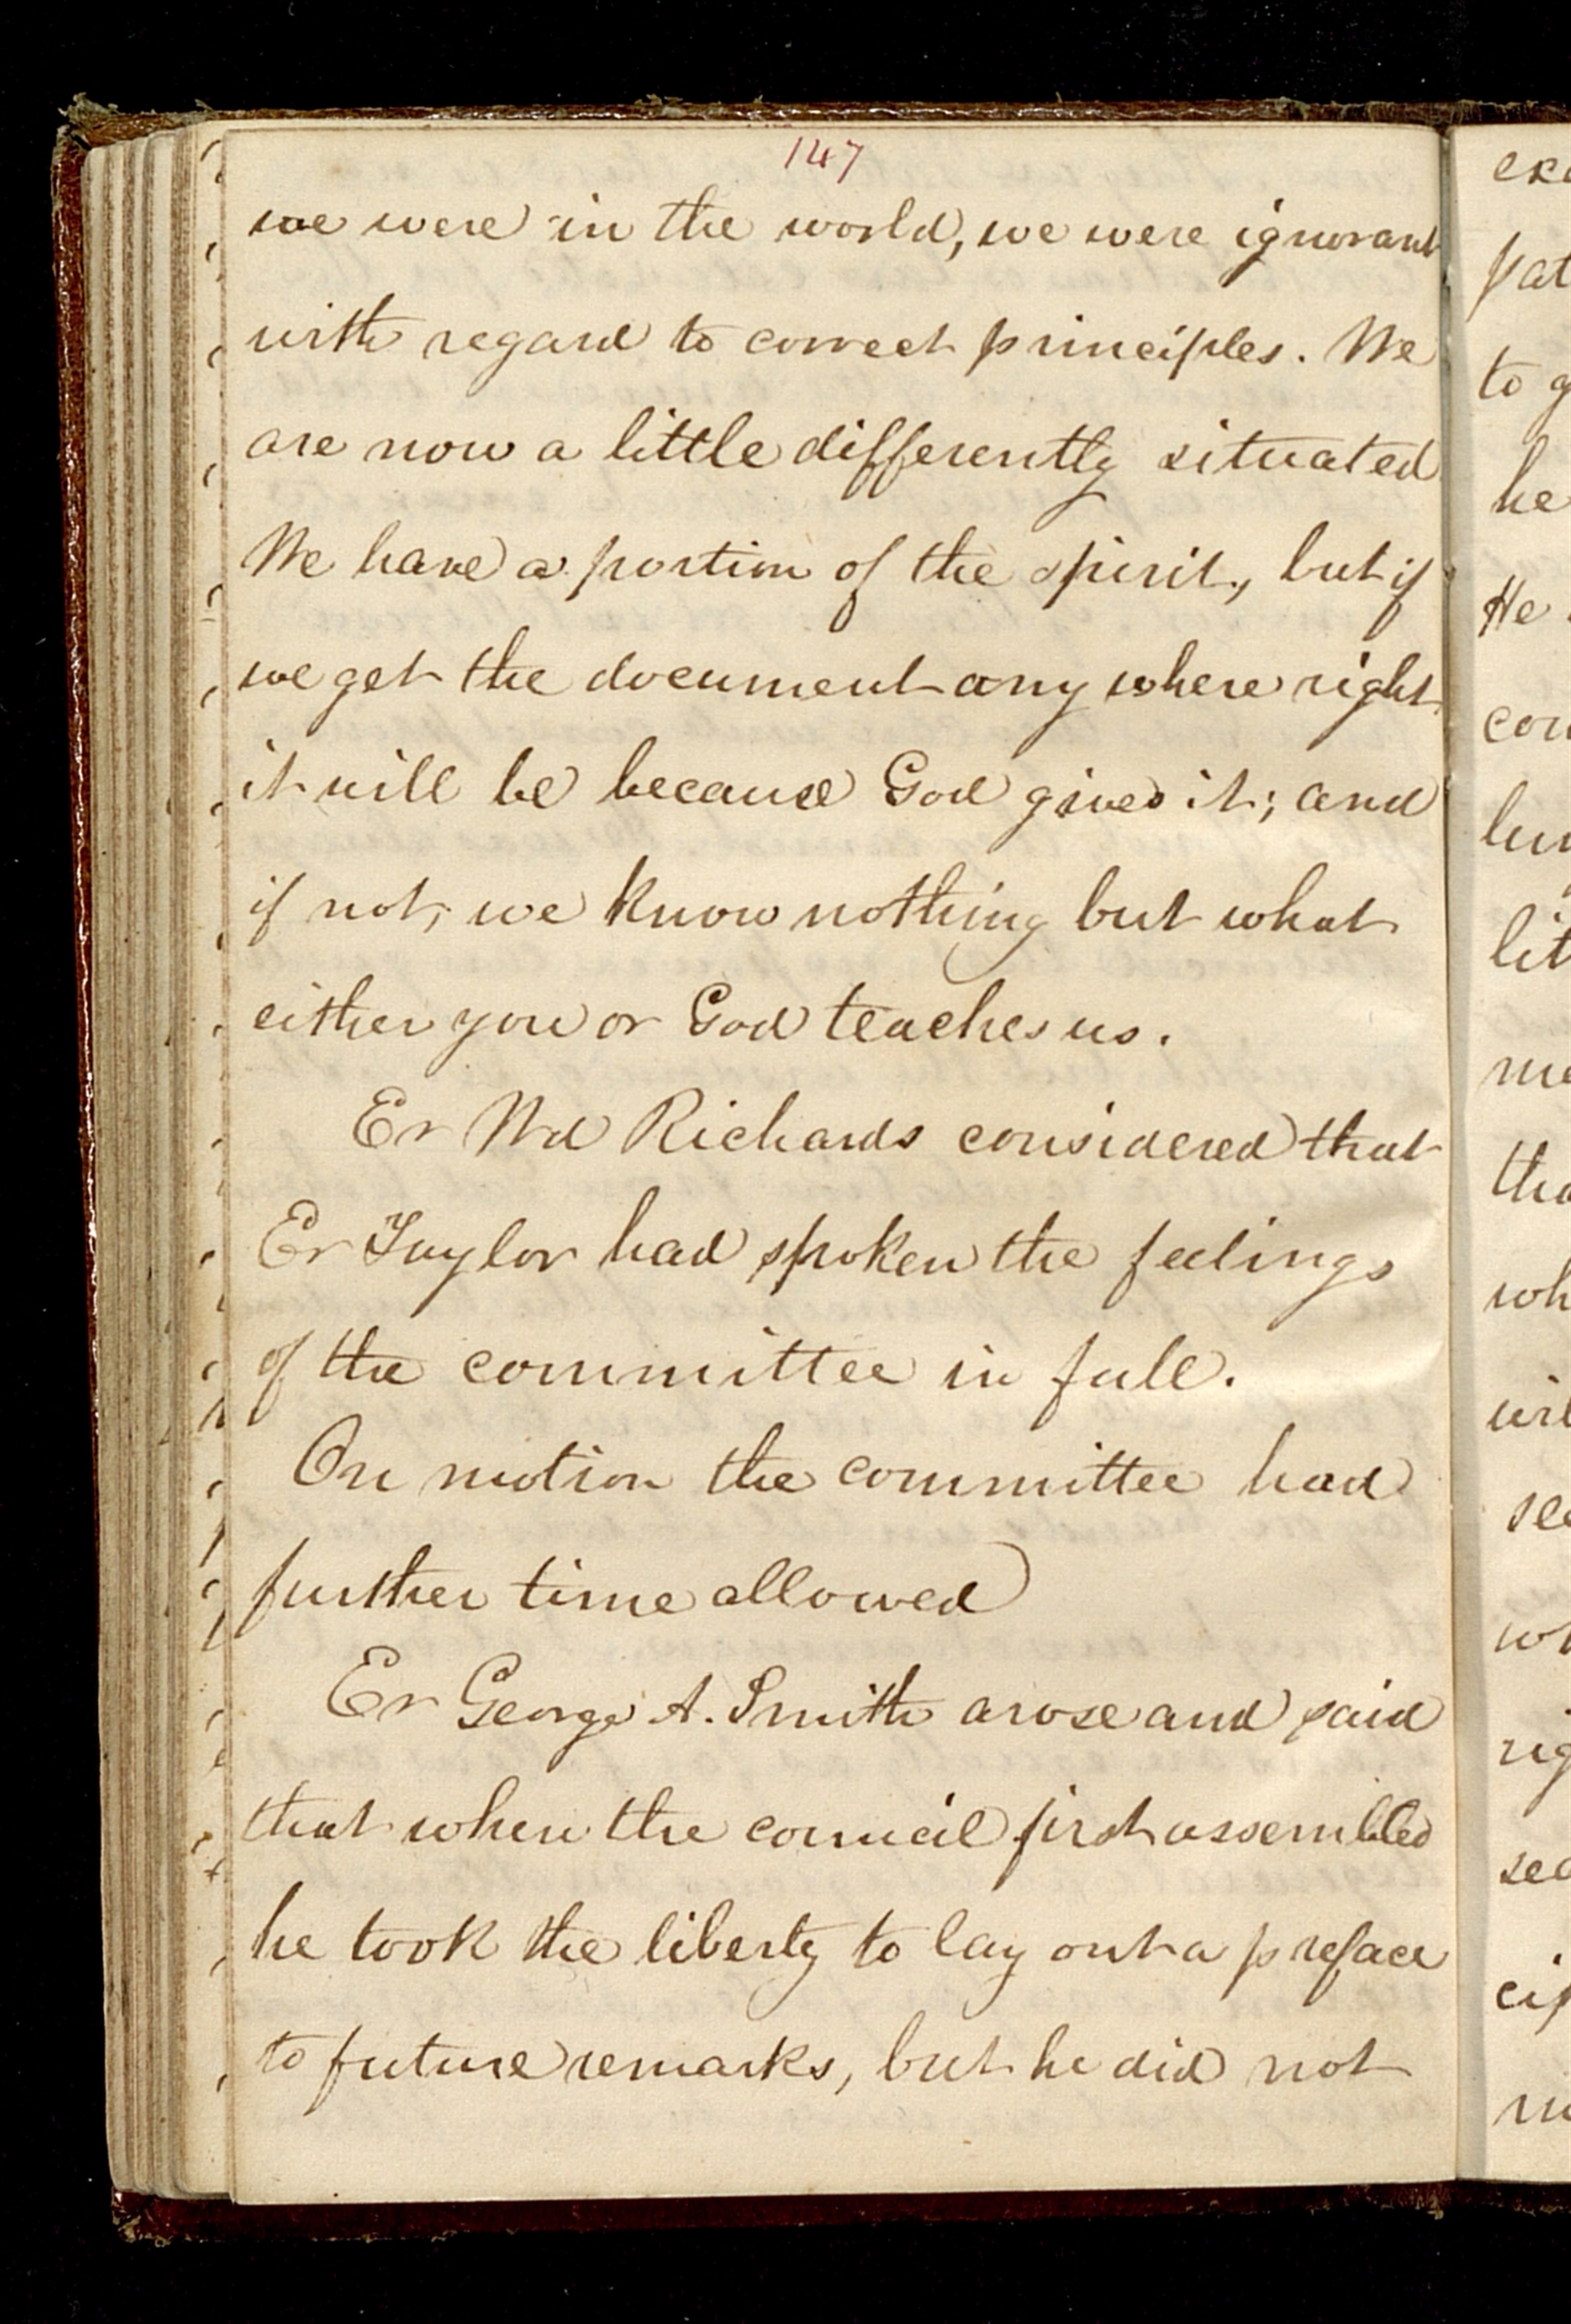 147
we were in the world, we were ignorant
with regard to correct principles. We
are now a little differently situated
We have a portion of the spirit, but if
we get the document any where right
it will be because God gives it; and
if not, we know nothing but what
either you or God teaches us.
Er Wd Richards considered that
Er Taylor had spoken the feelings
of the committee in full.
On motion the committee had
further time allowed
Er George A. Smith arose and said
that when the council first assembled
he took the liberty to lay out a preface
to future remarks, but he did not
pat
to g
he
He
con
lit
me
tha
wh
wil
see
rig
cip